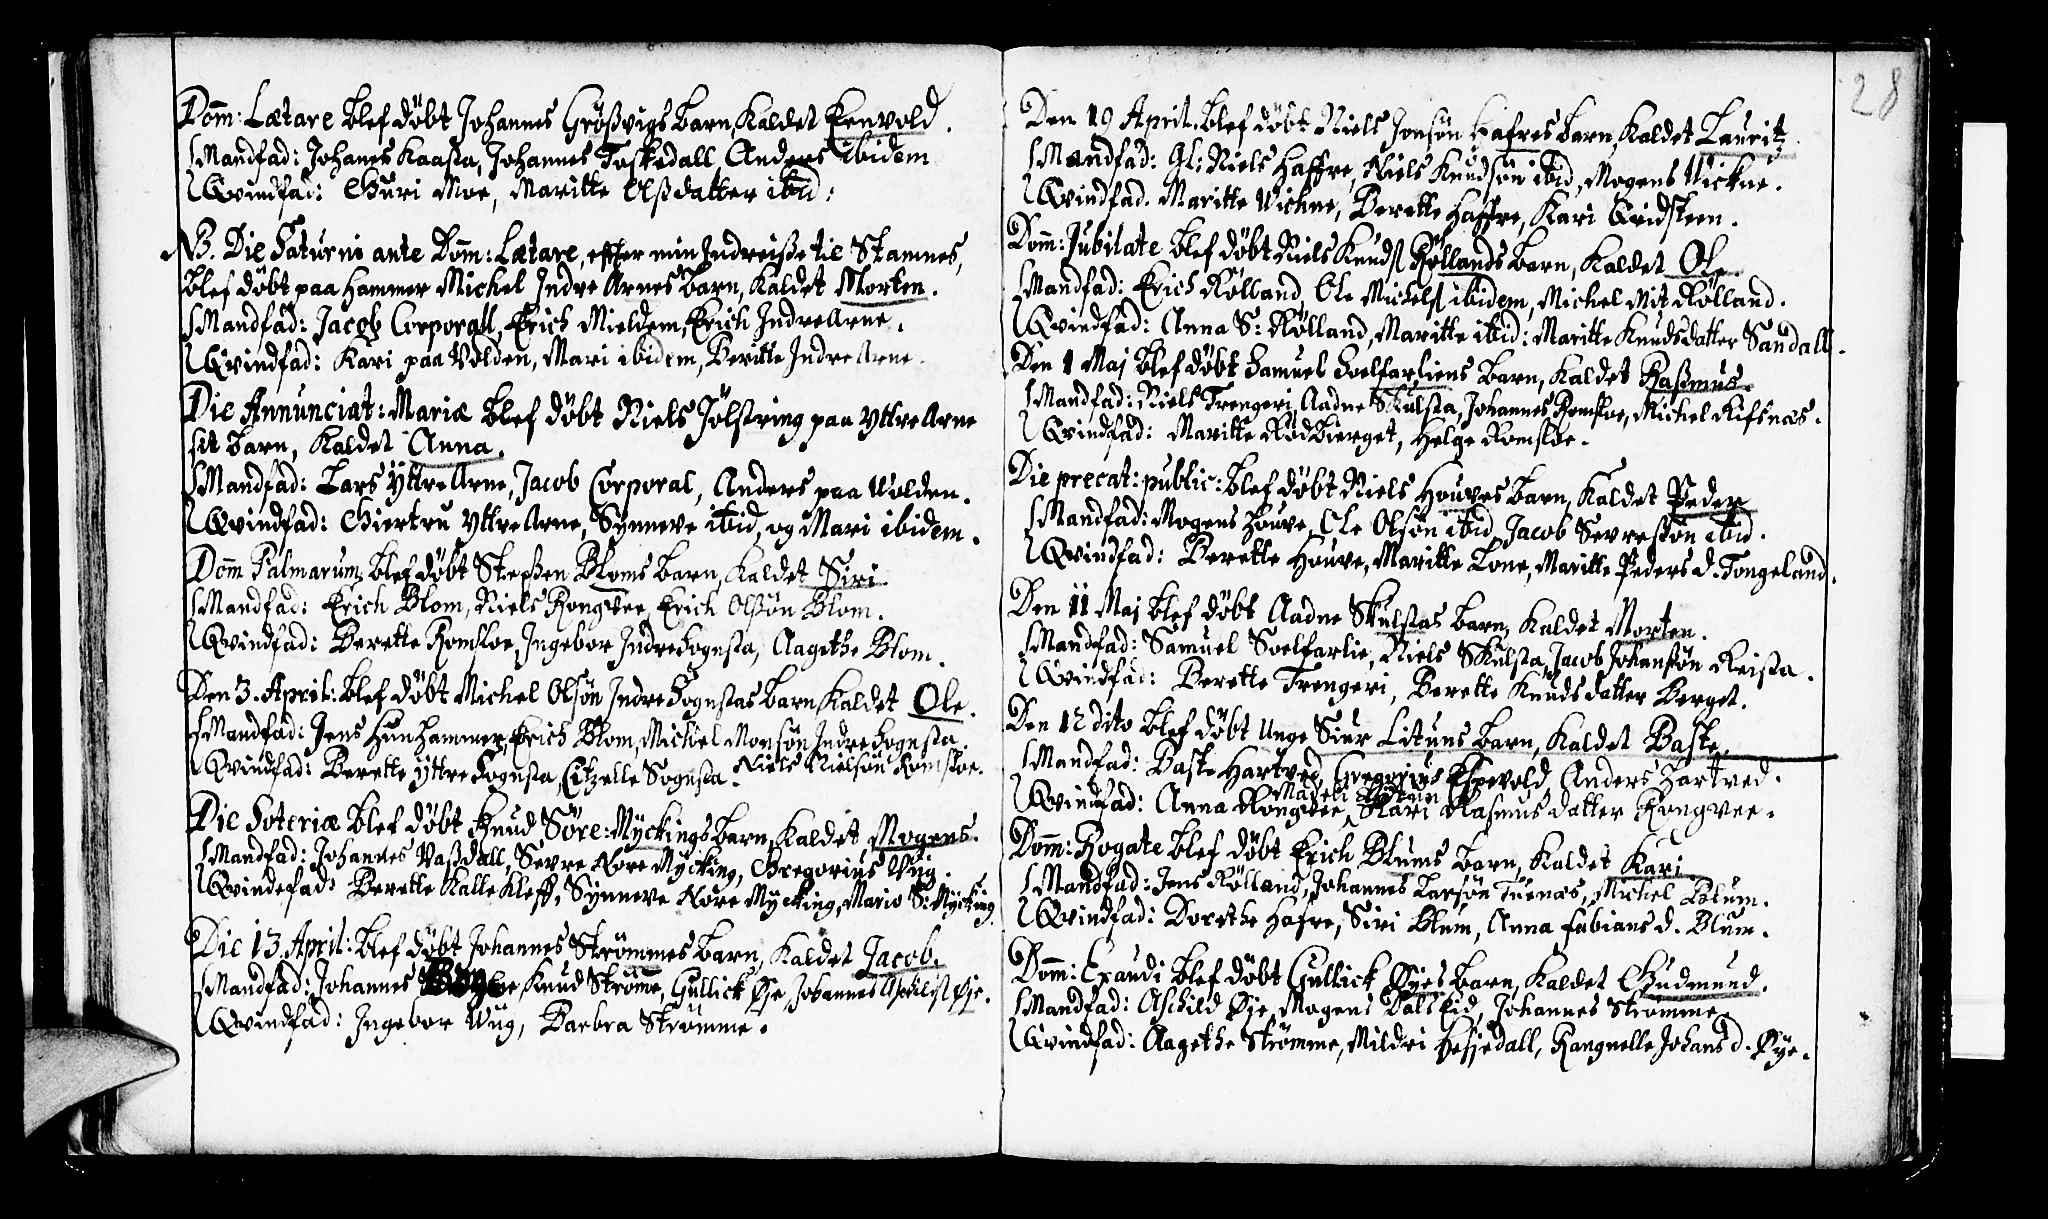 Dom̄: Lætare blef döbt Johannes Größvigs barn, kaldet Enevold.
Mandfad: Johanes Kaasta, Johannes Toskedall Anders ibidem
Qvindfad: Guri Moe, Maritte Olßdatter ibid:
NB. Die Saturni ante Dom̄: Lætare, effter min Indreiße til Stamnes,
blef döbt paa Hammer Michel Indre Arnes barn, kaldet Morten.
Mandfad: Jacob Corporall, Erich Mieldem, Erich Indre Arne.
Qvindfad: Kari paa Volden, Mari ibidem, Beritte Indre Arne.
Die Annunciat: Mariæ blef döbt Niels Jölstring paa Yttre Arne
sit barn, kaldet Anna.
Mandfad: Lars Yttre Arne, Jacob Corporal, Anders paa Volden.
Qvindfad: Giertru Yttre Arne, Synneve ibid, og Mari ibidem.
Dom̄ Palmarum, blef döbt Steffen Bloms barn, kaldet Siri
Mandfad: Erich Blom, Niels Rongvee, Erich Olßön Blom.
Qvindfad: Berette Romsloe, Ingebor Indre Sognsta, Aagethe Blom.
Den 3. April: blef döbt Michel Olsön Indre Sognstas barn kaldet Ole.
Mandfad: Jens Hunhammer, Erich Blom, Michel Monsön Indre Sognsta.
Niels Nielsön Romsloe.
Qvindfad: Berette Yttre Sognsta, Citzelle Sognsta.
Die Soteriæ blef döbt Knud Söre: Myckings barn, kaldet Mogens.
Mandfad: Johannes Vaßdall, Sevre Nore Mycking, Gregorius Wiig.
Qvindefad: Berette Kalle Kleff, Synneve Nore Mycking, Mario S: Mycking
Die 13. April: blef döbt Johannes Strömmes barn, kaldet Jacob.
Mandfad: Johannes Knud Strömme, Gullick Øje, Johannes Aschildß Øje.
Qvindfad: Ingebor Wug, Barbra Strömme.
28
Den 19 April. blef döbt Niels Jonsön Hafres barn, kaldet Lauritz.
Mandfad: Gl: Niels Haffre, Niels Knudsön ibid, Mogens Vickne.
Qvindfad. Maritte Vichne, Berette Haffre, Kari Qvidsteen.
Dom̄: Jubilate blef döbt Niels Knudß Röllands barn, kaldet Ole
Mandfad: Erich Rölland, Ole Michelß ibidem, Michel Mit Rölland.
Qvindfad: Anna S: Rölland, Maritte ibid: Maritte Knudsdatter Sandall.
Den 1 Maj blef döbt Samuel Soelfarliens barn, kaldet Raßmus.
Mandfad: Niels Trengeri, Aadne Skulsta, Johannes Romsloe, Michel Rifsnæs.
Qvindfad: Maritte Rödbierget, Helge Romsloe.
Die precat: public: blef döbt Niels Houves barn, kaldet Peder
Mandfad: Mogens Houve, Ole Olsön ibid, Jacob Sevreßön ibid.
Qvindfad: Berette Houve, Maritte Lone, Maritte Peders d. Tongeland.
Den 11 Maj blef döbt Aadne Skulstas barn, kaldet Morten.
Mandfad: Samuel Soelfarlie, Niels Skulsta, Jacob Johanßön Reista.
Qvindfad: Berette Trengeri, Berette Knudsdatter Berget.
Den 12 dito blef döbt Unge Siur Lituns barn, kaldet Baste
Mandfad: Baste Hartved, Gregorius Espevold, Anders Hartved.
Qvindfad: Anna Rongvee, Kari Rasmusdatter Rongvee.
Dom̄: Rogate blef döbt Erich Blums barn, kaldet Kari
Mandfad: Jens Rölland, Johannes Larsön Tuenæs, Michel Blum.
Qvindfad: Dorethe Hafre, Siri Blum, Anna Fabians d. Blum.
Dom̄: Exaudi blef döbt Gullick Øyes barn, kaldet Gudmund.
Mandfad: Aschild Øje, Mogens Dalseid, Johannes Strömme.
Qvindfad: Aagethe Strömme, Mildri Hesjedall, Rangnelle Johans d. Øye.